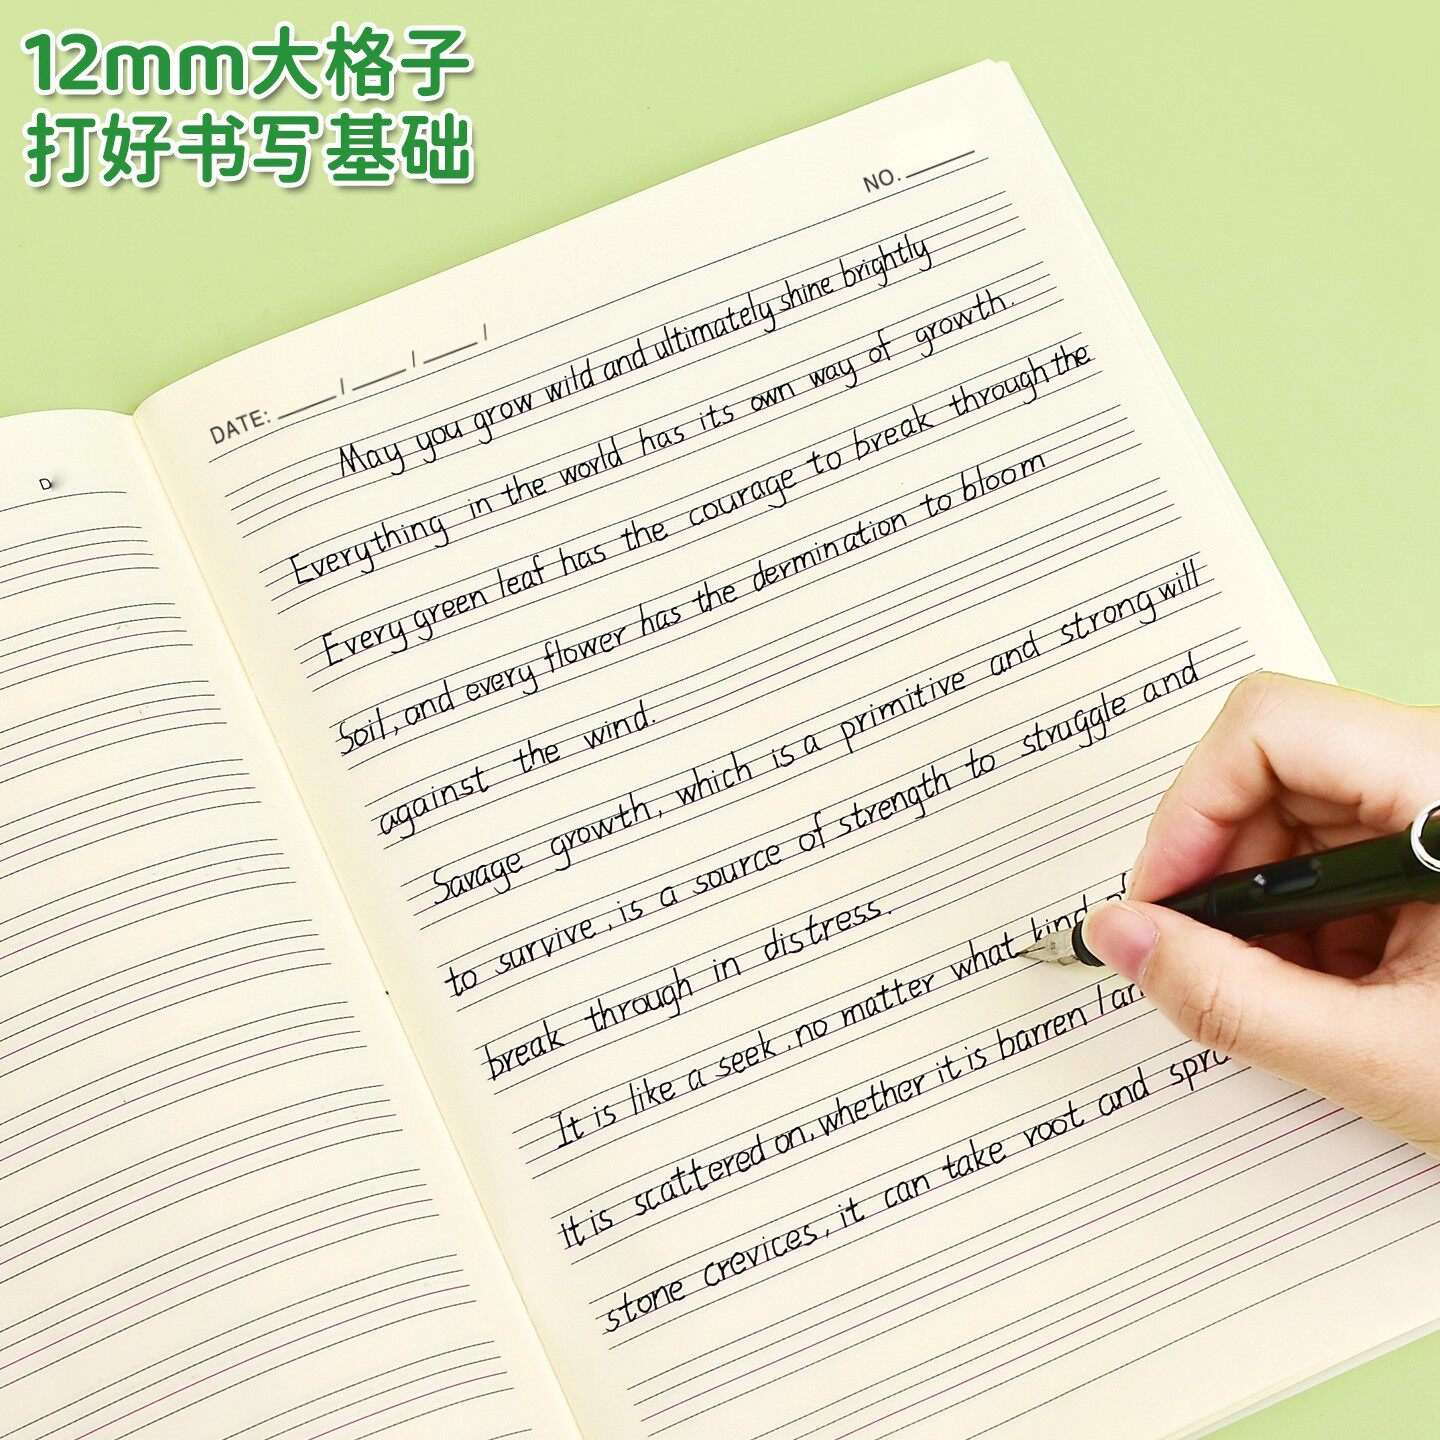 12mm大格子
打好书写基础
NO.
DATE: / / /
D
May you grow wild and ultimately shine brightly
Everything in the world has its own way of growth.
Every green leaf has the courage to break through the
Soil, and every flower has the dermination to bloom
against the wind.
Savage growth, which is a primitive and strong will
to survive, is a source of strength to struggle and
break through in distress.
It is like a seek, no matter what kind
It is scattered on, whether it is barren
stone crevices, it can take root and